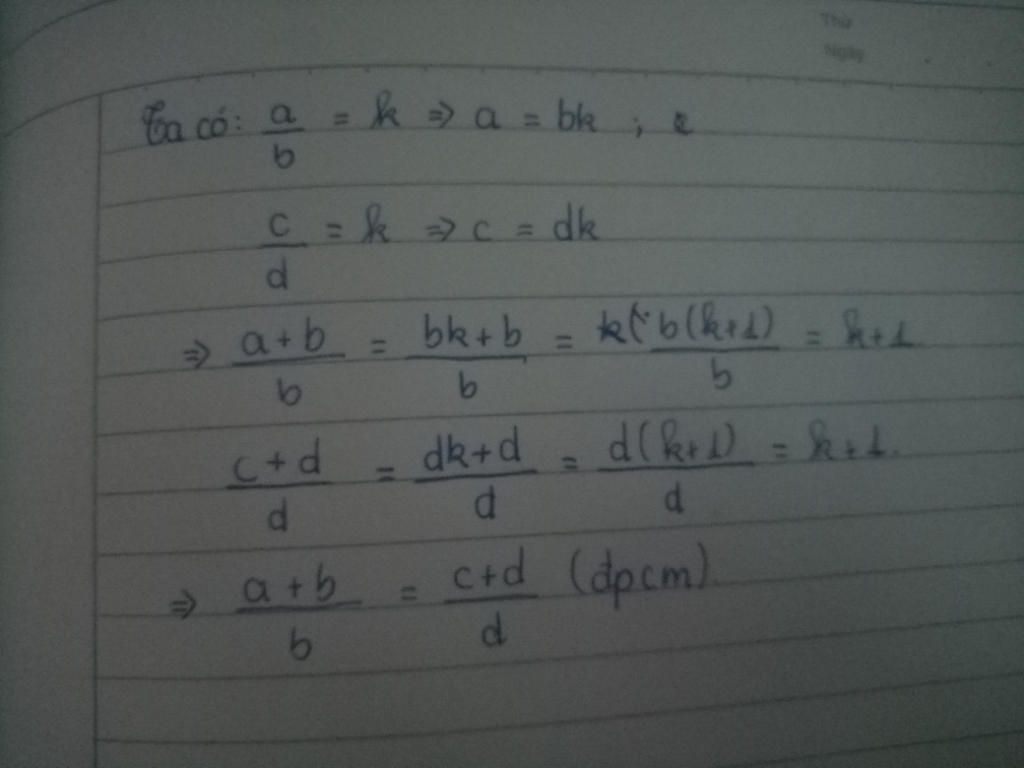 Thứ
Ngày
Ta có: a/b = k => a = bk ;
c/d = k => c = dk
=> a+b/b = bk+b/b = b(k+1)/b = k+1
c+d/d = dk+d/d = d(k+1)/d = k+1.
=> a+b/b = c+d/d (dpcm).